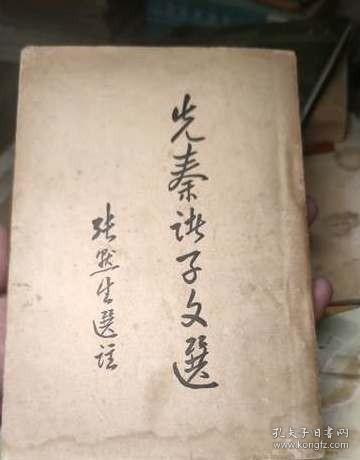 先秦諸子文選
張默生選註
孔夫子旧书网
www.kongfz.com